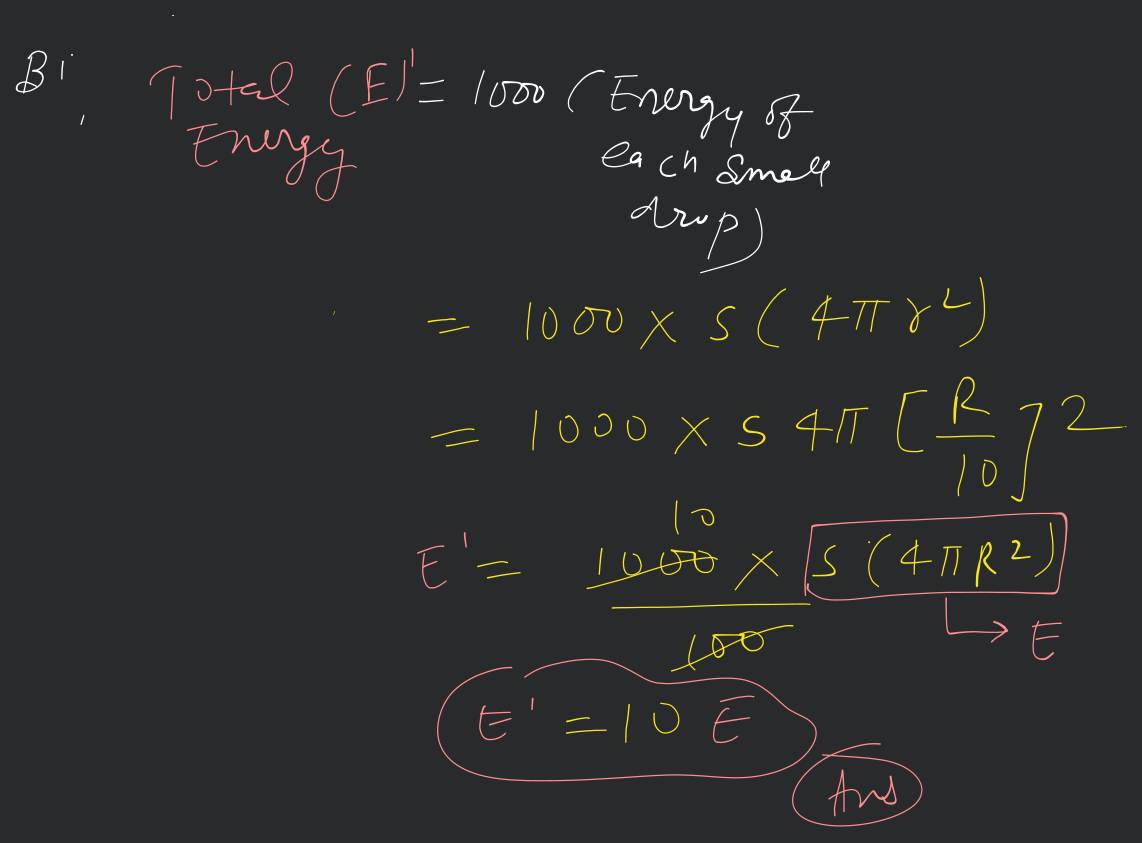 Bi, Total (E)' = 1000 (Energy of
Energy each small
drop)
= 1000 × S(4πr²)
= 1000 × S 4π [R/10]²
10
E' = 1000 × S(4πR²)
100 → E
E' = 10 E
Ans